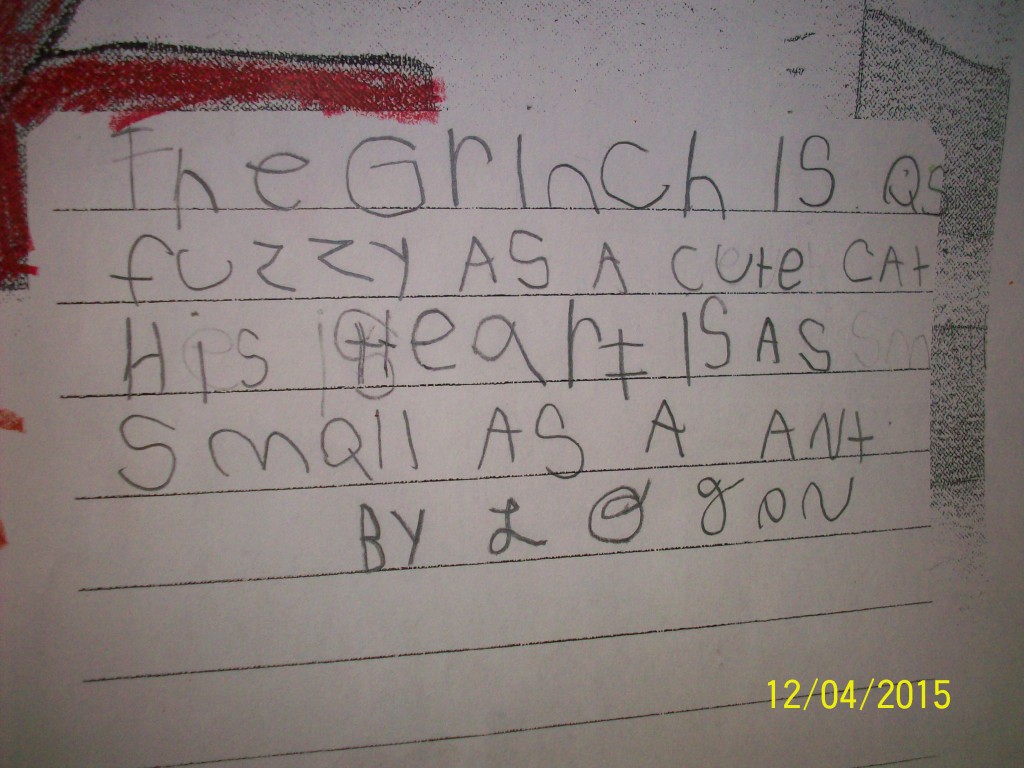 The GrInCh IS as
fuzzy AS A cute CAt
HiS Heart IS AS
Small AS A ANt
BY Logan
12/04/2015